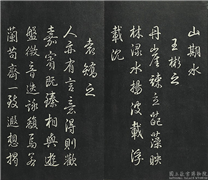 山期水
王彬之
丹崖竦立葩藻映
林渌水揚波載浮
載沉
袁嶠之
人亦有言意得則歡
嘉賓既臻相與遊
盤微音迭詠馥焉若
蘭苟齊一致遐想揭